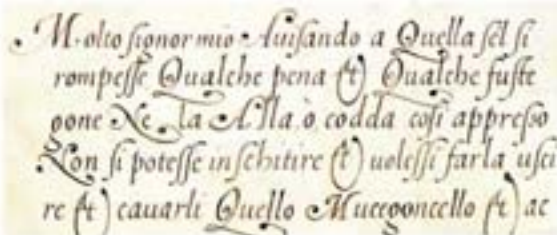 M.olto signor mio Auisando a Quella sel si
rompesse Qualche pena & Qualche fuste
gone Ne la Alla ò codda cosi appresso
Non si potesse inschitire & uolessi farla usci
re & cauarli Quello Muccgoncello & ac